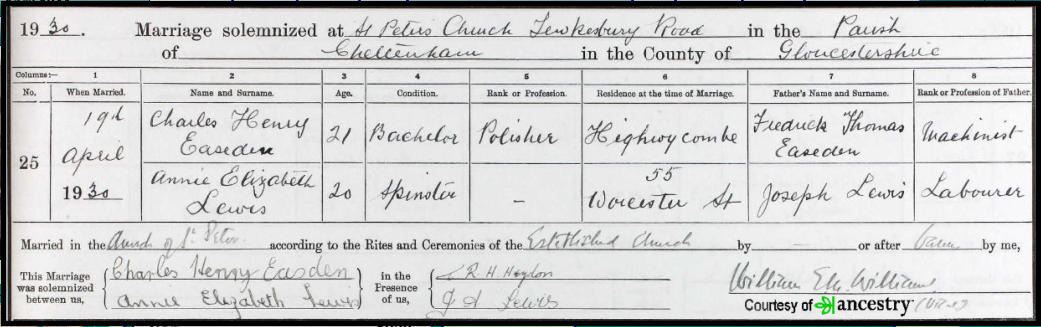 1930. Marriage solemnized at St Peters Church Tewkesbury Road in the Parish
of Cheltenham in the County of Gloucestershire
Columns:— 1 2 3 4 5 6 7 8
No. When Married. Name and Surname. Age. Condition. Rank or Profession. Residence at the time of Marriage. Father's Name and Surname. Rank or Profession of Father.
25 19th April 1930 Charles Henry Easeden 21 Bachelor Polisher Highwycombe Fredrick Thomas Easeden Machinist
Annie Elizabeth Lewis 20 Spinster — 55 Worcester St Joseph Lewis Labourer
Married in the Church of St. Peter according to the Rites and Ceremonies of the Established Church by — or after by me,
This Marriage was solemnized between us, Charles Henry Easden in the Presence of us, R. H. William
Annie Elizabeth Lewis Lewis
Courtesy of ancestry